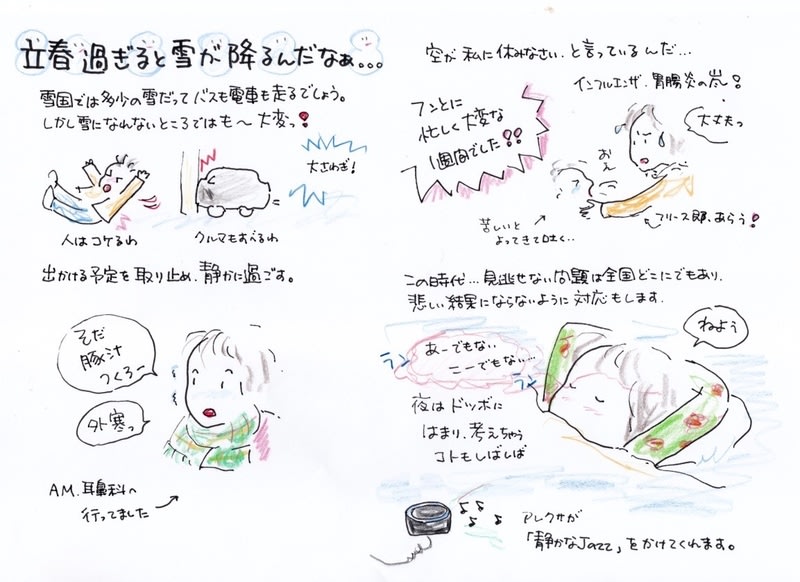 立春過ぎると雪が降るんだなぁ...
雪国では多少の雪だってバスも電車も走るでしょう。
しかし雪になれないところではも〜大変っ!
大さわぎ!
人はコケるわ
クルマもすべるわ
出かける予定を取り止め、静かに過ごす。
そだ
豚汁
つくろー
外寒っ
AM.耳鼻科へ
行ってました
空が私に休みなさい。と言っているんだ...
インフルエンザ、胃腸炎の嵐!
フンとに
忙しく大変な
1週間でした!!
大丈夫っ
おぇ
苦しいと
よってきて吐く..
フリース即、あらう!
この時代...見逃せない問題は全国どこにでもあり、
悲しい結果にならないように対応もします。
ねよぅ
あーでもない
こーでもない...
ラン
ラン
夜はドツボに
はまり、考えちゃう
コトもしばしば
アレクサが
「静かなJazz」をかけてくれます。